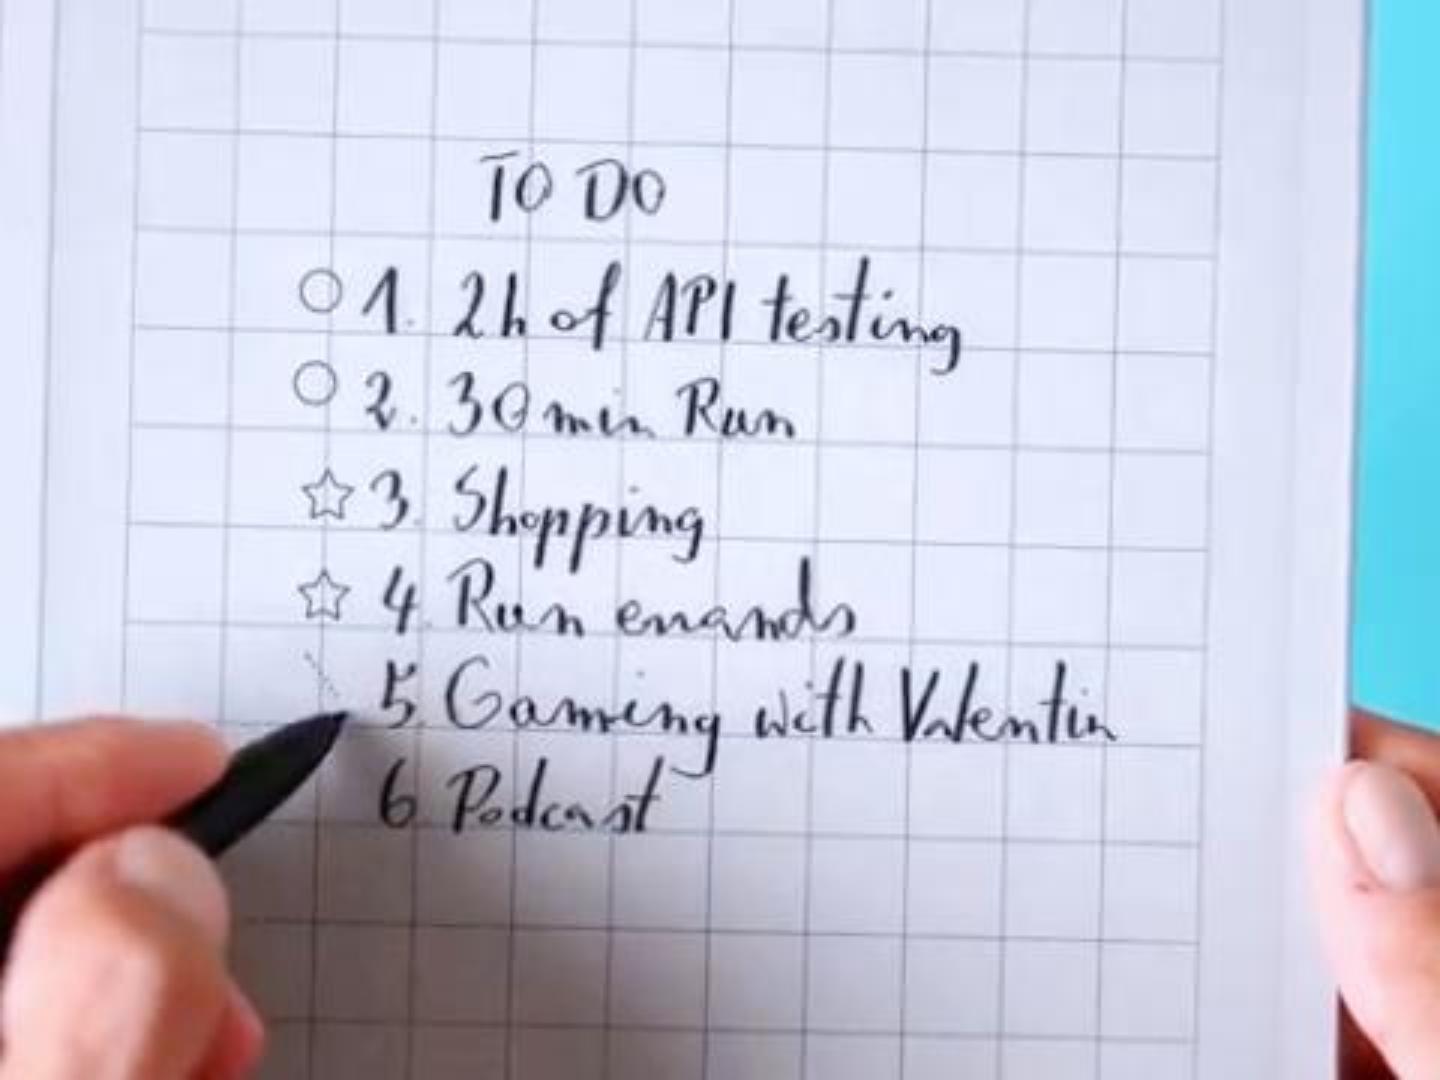 TO DO
1. 2h of API testing
2. 30 min Run
3. Shopping
4. Run errands
5. Gaming with Valentin
6 Podcast